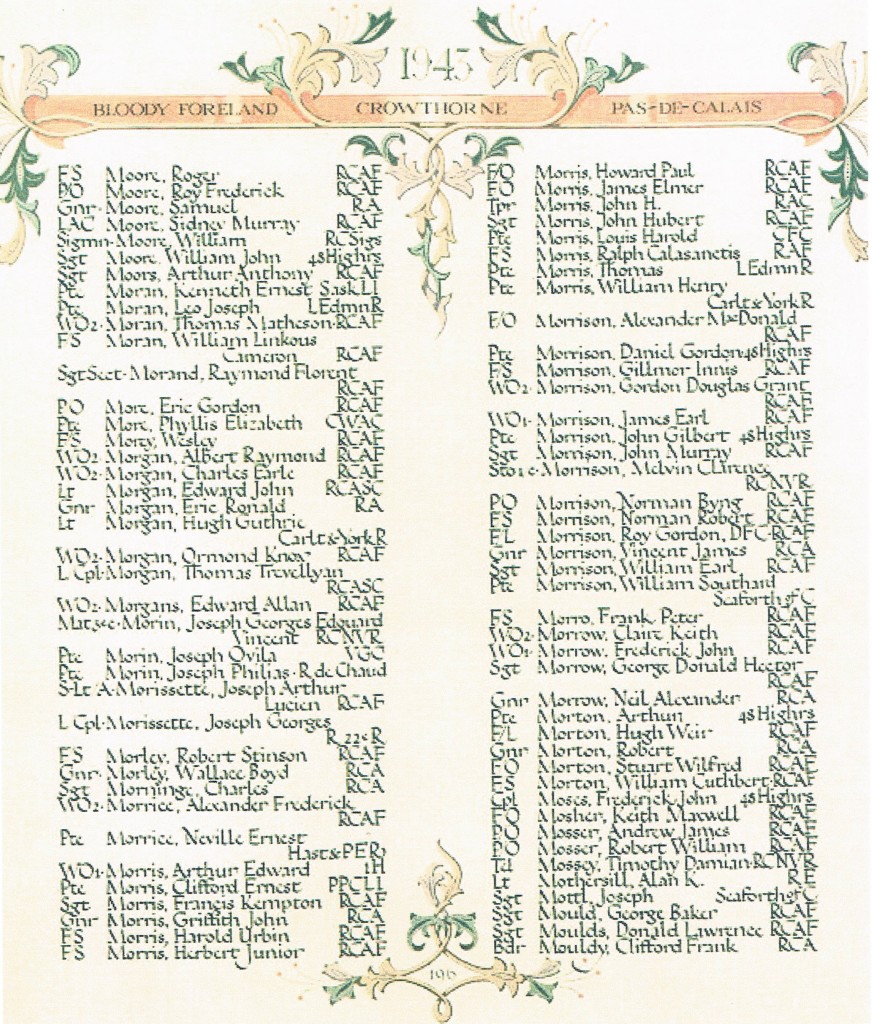 1943
BLOODY FORELAND CROWTHORNE PAS-DE-CALAIS
FS Moore, Roger RCAF
PO Moore, Roy Frederick RCAF
Gnr Moore, Samuel RA
LAC Moore, Sidney Murray RCAF
Sigmn Moore, William RCSigs
Sgt Moore, William John 48Highrs
Sgt Moors, Arthur Anthony RCAF
Pte Moran, Kenneth Ernest SaskLI
Pte Moran, Leo Joseph LEdmnR
WO2 Moran, Thomas Matheson RCAF
FS Moran, William Linkous
Cameron RCAF
Sgt Sect Morand, Raymond Florent
RCAF
PO More, Eric Gordon RCAF
Pte More, Phyllis Elizabeth CWAC
FS Morey, Wesley RCAF
WO2 Morgan, Albert Raymond RCAF
WO2 Morgan, Charles Earle RCAF
Lt Morgan, Edward John RCASC
Gnr Morgan, Eric Ronald RA
Lt Morgan, Hugh Guthrie
Carlt&YorkR
WO2 Morgan, Ormond Knox RCAF
L Cpl Morgan, Thomas Trevellyan
RCASC
WO2 Morgans, Edward Allan RCAF
Mat3ec Morin, Joseph Georges Edouard
Vincent RCNVR
Pte Morin, Joseph Ovila VGC
Pte Morin, Joseph Philias R de Chaud
S-Lt A Morissette, Joseph Arthur
Lucien RCAF
L Cpl Morissette, Joseph Georges
R 22e R
FS Morley, Robert Stinson RCAF
Gnr Morley, Wallace Boyd RCA
Sgt Morninge, Charles RCA
WO2 Morrice, Alexander Frederick
RCAF
Pte Morrice, Neville Ernest
Hast&PER
WO1 Morris, Arthur Edward 1H
Pte Morris, Clifford Ernest PPCLI
Sgt Morris, Francis Kempton RCAF
Gnr Morris, Griffith John RCA
FS Morris, Harold Urbin RCAF
FS Morris, Herbert Junior RCAF
F/O Morris, Howard Paul RCAF
FO Morris, James Elmer RCAF
Tpr Morris, John H. RAC
Sgt Morris, John Hubert RCAF
Pte Morris, Louis Harold CFC
FS Morris, Ralph Calasanetis RAF
Pte Morris, Thomas LEdmnR
Pte Morris, William Henry
Carlt&YorkR
F/O Morrison, Alexander MacDonald
RCAF
Pte Morrison, Daniel Gordon 48Highrs
F/S Morrison, Gillmor Innis RCAF
WO2 Morrison, Gordon Douglas Grant
RCAF
WO1 Morrison, James Earl RCAF
Pte Morrison, John Gilbert 48Highrs
Sgt Morrison, John Murray RCAF
Sto1c Morrison, Melvin Clarence
RCNVR
PO Morrison, Norman Byng RCAF
FS Morrison, Norman Robert RCAF
FL Morrison, Roy Gordon, DFC RCAF
Gnr Morrison, Vincent James RCA
Sgt Morrison, William Earl RCAF
Pte Morrison, William Southard
Seaforth of C
FS Morro, Frank Peter RCAF
WO2 Morrow, Claire Keith RCAF
WO1 Morrow, Frederick John RCAF
Sgt Morrow, George Donald Hector
RCAF
Gnr Morrow, Neil Alexander RCA
Pte Morton, Arthur 48Highrs
F/L Morton, Hugh Weir RCAF
Gnr Morton, Robert RCA
FO Morton, Stuart Wilfred RCAF
FS Morton, William Cuthbert RCAF
Cpl Moses, Frederick John 48Highrs
FO Mosher, Keith Maxwell RCAF
PO Mosser, Andrew James RCAF
PO Mosser, Robert William RCAF
Tel Mossey, Timothy Damian RCNVR
Lt Mothersill, Alan K. RE
Sgt Mottl, Joseph Seaforth of C
Sgt Mould, George Baker RCAF
Sgt Moulds, Donald Lawrence RCAF
Bdr Mouldy, Clifford Frank RCA
196